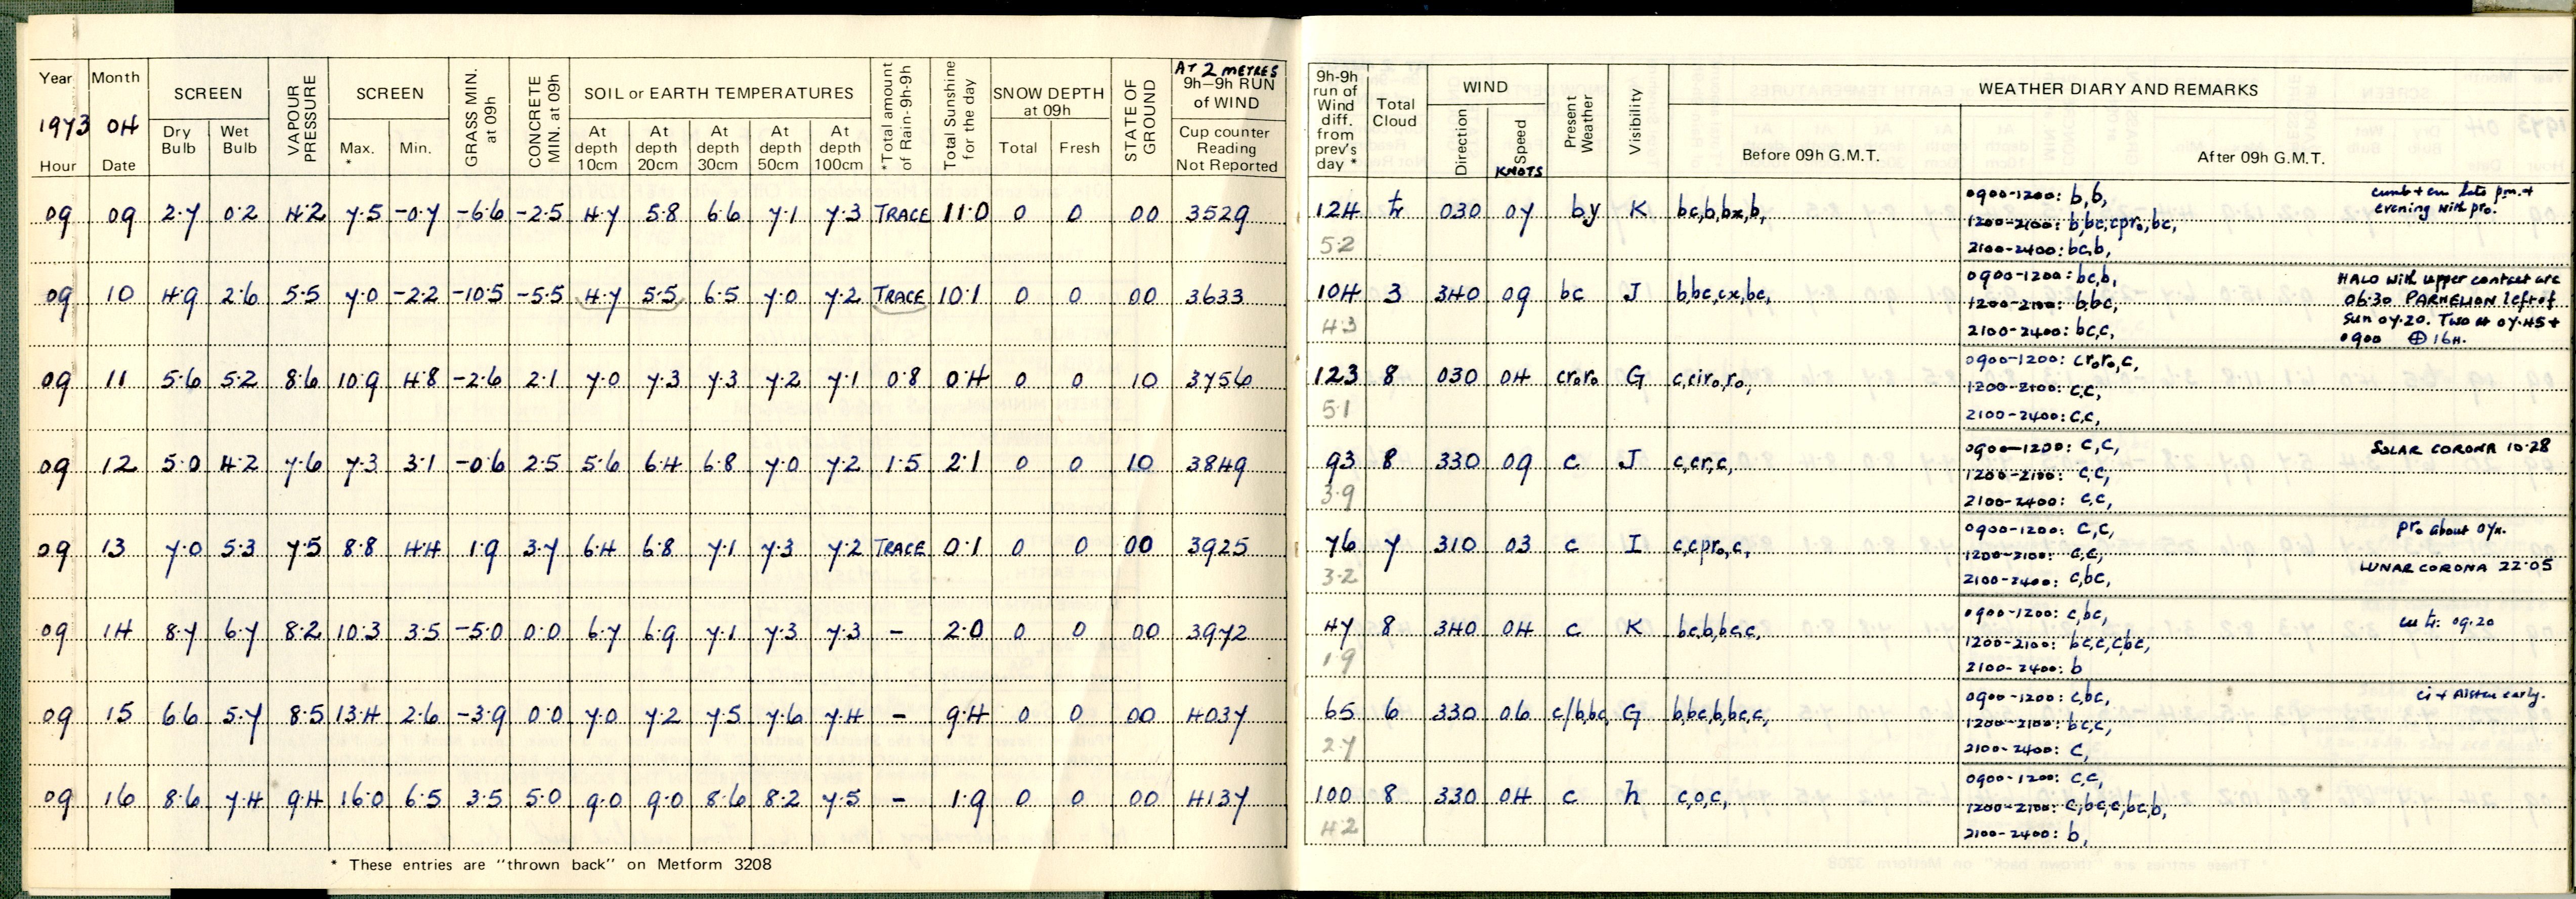 Year Month
1973 04
Hour Date
SCREEN
Dry Bulb
Wet Bulb
VAPOUR PRESSURE
SCREEN
Max. *
Min.
GRASS MIN. at 09h
CONCRETE MIN. at 09h
SOIL or EARTH TEMPERATURES
At depth 10cm
At depth 20cm
At depth 30cm
At depth 50cm
At depth 100cm
*Total amount of Rain-9h-9h
Total Sunshine for the day
SNOW DEPTH at 09h
Total Fresh
STATE OF GROUND
AT 2 METRES
9h–9h RUN of WIND
Cup counter Reading Not Reported
09 09 2.7 0.2 4.2 7.5 -0.7 -6.6 -2.5 4.7 5.8 6.6 7.1 7.3 TRACE 11.0 0 0 00 3529
09 10 4.9 2.6 5.5 7.0 -2.2 -10.5 -5.5 4.7 5.5 6.5 7.0 7.2 TRACE 10.1 0 0 00 3633
09 11 5.6 5.2 8.6 10.9 4.8 -2.6 2.1 7.0 7.3 7.3 7.2 7.1 0.8 0.4 0 0 10 3756
09 12 5.0 4.2 7.6 7.3 3.1 -0.6 2.5 5.6 6.4 6.8 7.0 7.2 1.5 2.1 0 0 10 3849
09 13 7.0 5.3 7.5 8.8 4.4 1.9 3.7 6.4 6.8 7.1 7.3 7.2 TRACE 0.1 0 0 00 3925
09 14 8.7 6.7 8.2 10.3 3.5 -5.0 0.0 6.7 6.9 7.1 7.3 7.3 - 2.0 0 0 00 3972
09 15 6.6 5.7 8.5 13.4 2.6 -3.9 0.0 7.0 7.2 7.5 7.6 7.4 - 9.4 0 0 00 4037
09 16 8.6 7.4 9.4 16.0 6.5 3.5 5.0 9.0 9.0 8.6 8.2 7.5 - 1.9 0 0 00 4137
* These entries are "thrown back" on Metform 3208
9h-9h run of Wind diff. from prev's day *
Total Cloud
WIND
Direction
Speed
KNOTS
Present Weather
Visibility
WEATHER DIARY AND REMARKS
Before 09h G.M.T.
After 09h G.M.T.
124 tr 030 07 by K bc,b,bx,b,
5.2
0900-1200: b,b,
1200-2100: b,bc,cpr₀,bc,
2100-2400: bc,b,
evening with pro.
104 3 340 09 bc J b,bc,cx,bc,
4.3
0900-1200: bc,b,
1200-2100: b,bc,
2100-2400: bc,c,
HALO with upper contact arc
06.30 PARHELION left of
sun 07.20. Two at 07.45 +
0900 ⊕ 164.
123 8 030 04 cr₀r₀ G c,cir₀,r₀,
5.1
0900-1200: cr₀r₀,c,
1200-2100: c,c,
2100-2400: c,c,
93 8 330 09 c J c,cr,c,
3.9
0900-1200: c,c,
1200-2100: c,c,
2100-2400: c,c,
SOLAR CORONA 10.28
76 7 310 03 c I c,cpr₀,c,
3.2
0900-1200: c,c,
1200-2100: c,c,
2100-2400: c,bc,
pr₀ about 07h.
LUNAR CORONA 22.05
47 8 340 04 c K bc,b,bc,c,
1.9
0900-1200: c,bc,
1200-2100: bc,c,c,bc,
2100-2400: b
cu tr: 09.20
65 6 330 06 c/b,bc G b,bc,b,bc,c,
2.7
0900-1200: c,bc,
1200-2100: bc,c,
2100-2400: c,
100 8 330 04 c h c,o,c,
4.2
0900-1200: c,c,
1200-2100: c,bc,c,bc,b,
2100-2400: b,